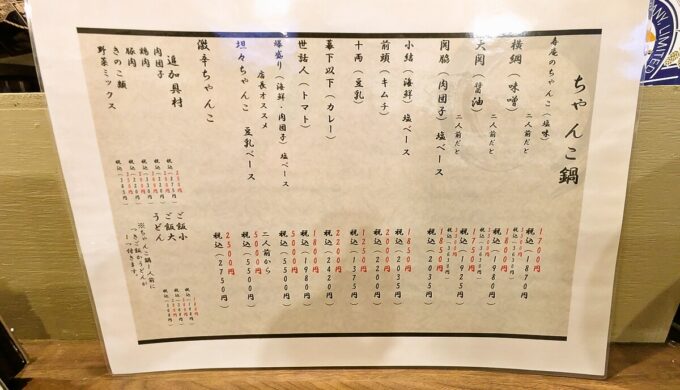 ちゃんこ鍋
寿庵のちゃんこ（塩味） 1700円
税込（1870円）
二人前だと
横綱（味噌） 1800円
税込（1980円）
二人前だと
大関（醤油） 1750円
税込（1925円）
二人前だと
関脇（肉団子）塩ベース 1850円
税込（2035円）
小結（海鮮）塩ベース 1850円
税込（2035円）
前頭（キムチ） 2000円
税込（2200円）
十両（豆乳）
税込（1975円）
幕下以下（カレー） 2200円
税込（2420円）
世話人（トマト） 1800円
税込（1980円）
爆盛り（海鮮・肉団子）塩ベース 5000円
税込（5500円）
店長オススメ
坦々ちゃんこ 豆乳ベース 二人前から
5000円
税込（5500円）
激辛ちゃんこ 2500円
税込（2750円）
追加具材
肉団子
鶏肉
豚肉
きのこ類
野菜ミックス
ご飯小
ご飯大
うどん
※ちゃんこ鍋1人前に
つきご飯かうどんが
1つ付きます。